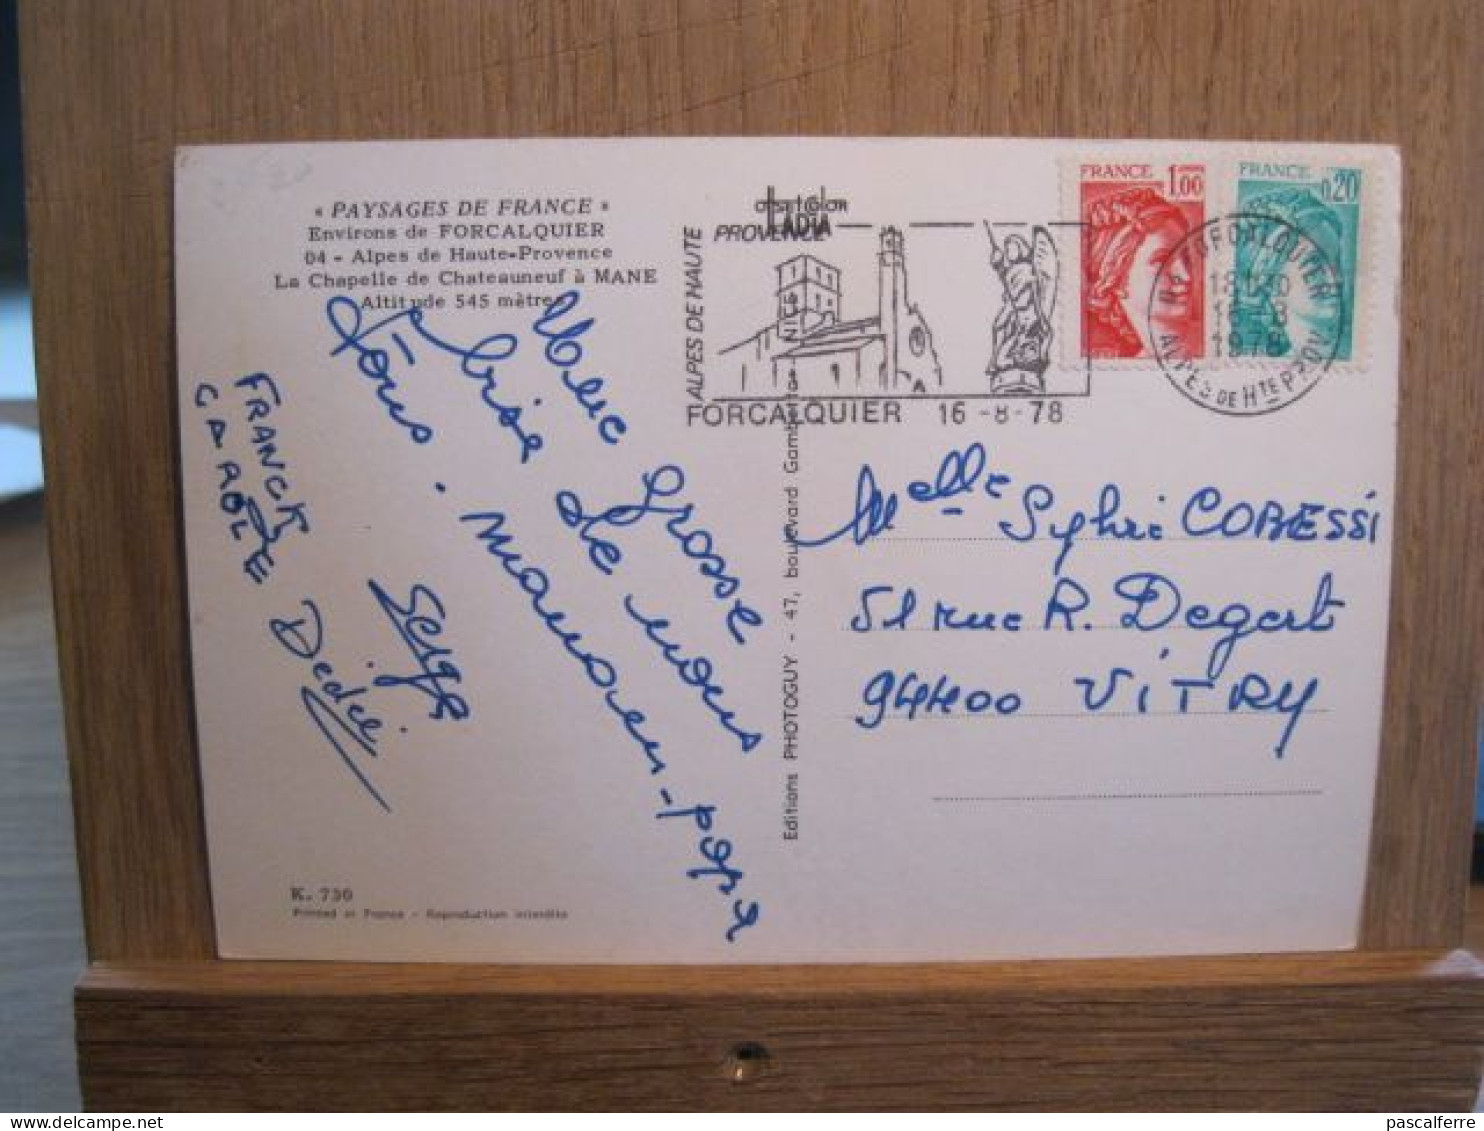 « PAYSAGES DE FRANCE »
Environs de FORCALQUIER
04 - Alpes de Haute-Provence
La Chapelle de Chateauneuf à MANE
Altitude 545 mètres
Une grosse
bise de nous
tous. maman-papa
FRANCK
CAROLE
Serge
Dédée
K. 730
Printed in France - Reproduction interdite
Editions PHOTOGUY - 47, boulevard Gambetta - NICE
offset color
ALPES DE HAUTE
PROVENCE
FORCALQUIER 16-8-78
FRANCE 1.00
FRANCE 0.20
FORCALQUIER
1978
ALPES DE HTE PROV
Melle Sylvie CORESSI
51 rue R. Degert
94400 VITRY
pascalferre